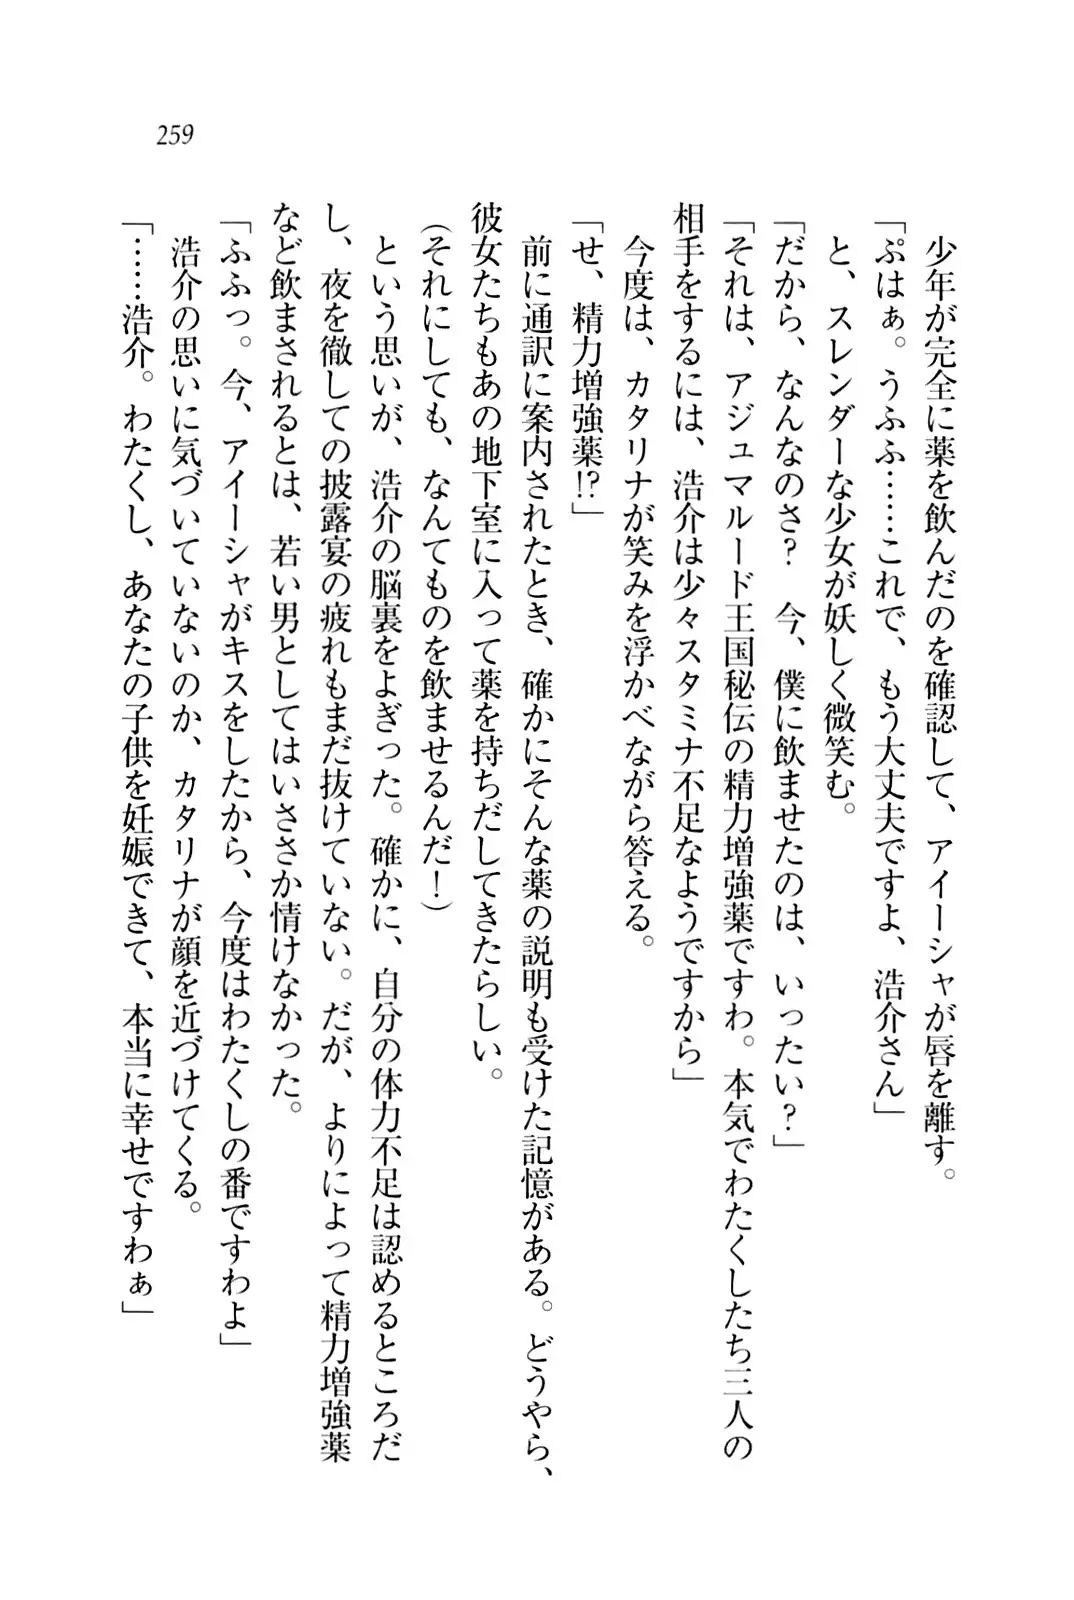 259
少年が完全に薬を飲んだのを確認して、アイーシャが唇を離す。
「ぷはぁ。うふふ……これで、もう大丈夫ですよ、浩介さん」
と、スレンダーな少女が妖しく微笑む。
「だから、なんなのさ？　今、僕に飲ませたのは、いったい？」
「それは、アジュマルード王国秘伝の精力増強薬ですわ。本気でわたくしたち三人の
相手をするには、浩介は少々スタミナ不足なようですから」
今度は、カタリナが笑みを浮かべながら答える。
「せ、精力増強薬!?」
前に通訳に案内されたとき、確かにそんな薬の説明も受けた記憶がある。どうやら、
彼女たちもあの地下室に入って薬を持ちだしてきたらしい。
（それにしても、なんてものを飲ませるんだ！）
という思いが、浩介の脳裏をよぎった。確かに、自分の体力不足は認めるところだ
し、夜を徹しての披露宴の疲れもまだ抜けていない。だが、よりによって精力増強薬
など飲まされるとは、若い男としてはいささか情けなかった。
「ふふっ。今、アイーシャがキスをしたから、今度はわたくしの番ですわよ」
浩介の思いに気づいていないのか、カタリナが顔を近づけてくる。
「……浩介。わたくし、あなたの子供を妊娠できて、本当に幸せですわぁ」